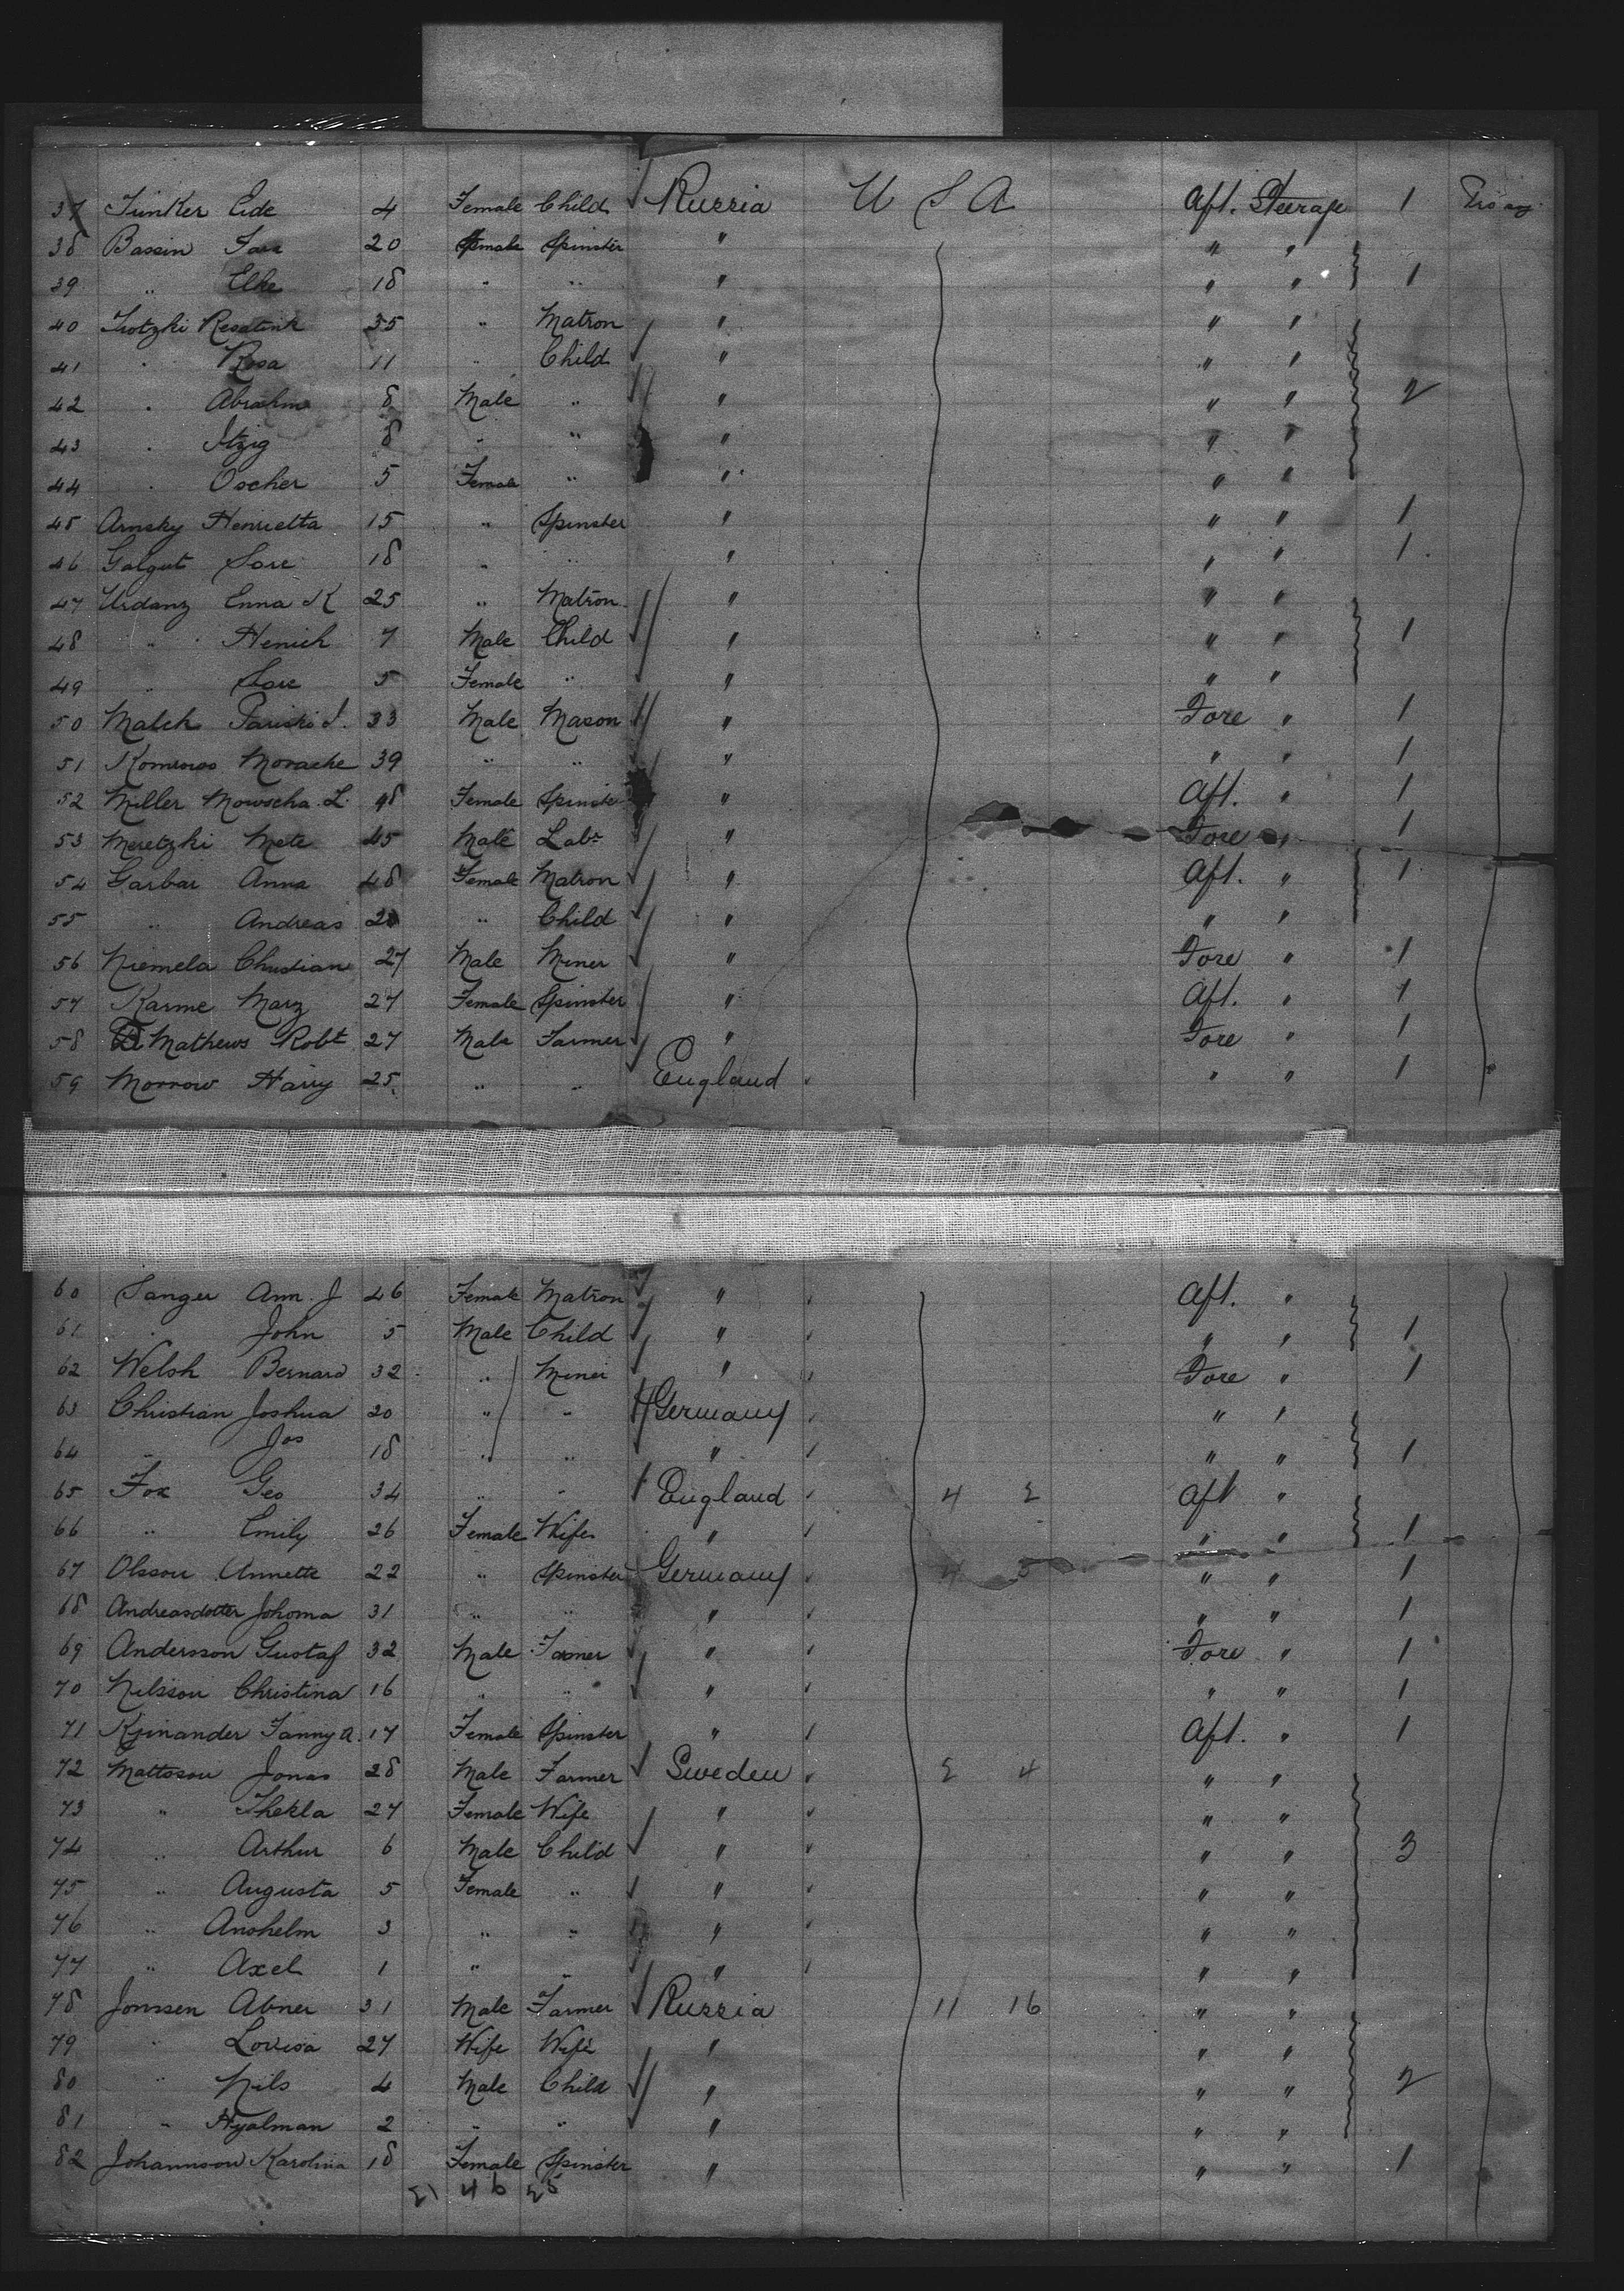 37 Junker Eide 4 Female Child Russia U S A Aft. Steerage 1
38 Bassin 20 Female Spinster " " "
39 " Elke 18 " " " " " 1
40 Trotzki 35 " Matron " " "
41 " Rosa 11 " Child " " "
42 " Abrahm 8 Male " " " " 2
43 " Itzig 8 " " " " "
44 " Oscher 5 Female " " " "
45 Arnsky Henrietta 15 " Spinster " " " 1
46 Galgut Sore 18 " " " " " 1
47 Urdanz Enna K 25 " Matron " " "
48 " Henich 7 Male Child " " " 1
49 " Sore 5 Female " " " "
50 Malek 33 Male Mason " Fore " 1
51 Morache 39 " " " " " 1
52 Miller Mowscha L. 48 Female Spinster " Aft. " 1
53 Meretzki Mete 45 Male Labr " Fore " 1
54 Garbar Anna 48 Female Matron " Aft. " 1
55 " Andreas " Child " " "
56 Niemela Christian 27 Male Miner " Fore " 1
57 Karme Marz 27 Female Spinster " Aft. " 1
58 Mathews Robt 27 Male Farmer " Fore " 1
59 Morrow Harry 25 " " England " " 1
60 Sanger Ann. J 46 Female Matron " Aft. "
61 " John 5 Male Child " " " 1
62 Welsh Bernard 32 " Miner " Fore " 1
63 Christian Joshua 20 " " Germany " "
64 " Jos 18 " " " " " 1
65 Fox Geo 34 " " England 4 2 Aft "
66 " Emily 26 Female Wife " " " 1
67 Olsson Annette 22 " Spinster Germany 4 5 " " 1
68 Andreasdotter Johoma 31 " " " " " 1
69 Andersson Gustaf 32 Male Farmer " Fore " 1
70 Nilsson Christina 16 " " " " " 1
71 Kjinander Fanny A. 17 Female Spinster " Aft. " 1
72 Mattsson Jonas 28 Male Farmer Sweden 2 4 " "
73 " Thekla 27 Female Wife " " "
74 " Arthur 6 Male Child " " " 3
75 " Augusta 5 Female " " " "
76 " Anshelm 3 " " " " "
77 " Axel 1 " " " " "
78 Jonssen Abner 31 Male Farmer Russia 11 16 " "
79 " Lovisa 27 Wife Wife " " "
80 " Nils 4 Male Child " " " 2
81 " Hjalman 2 " " " " "
82 Johannson Karolina 18 Female Spinster " " " 1
21 46 25